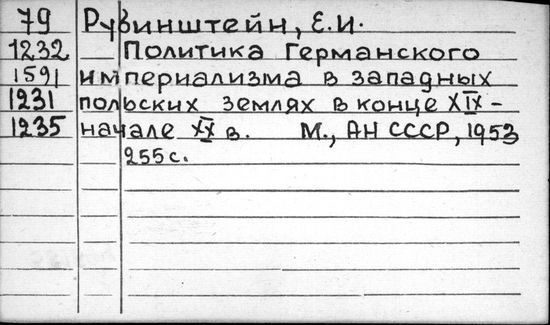 79 Рубинштейн, Е.И.
1232 Политика Германского
1591 империализма в западных
1231 польских землях в конце XIX -
1235 начале XX в. М., АН СССР, 1953
255 с.